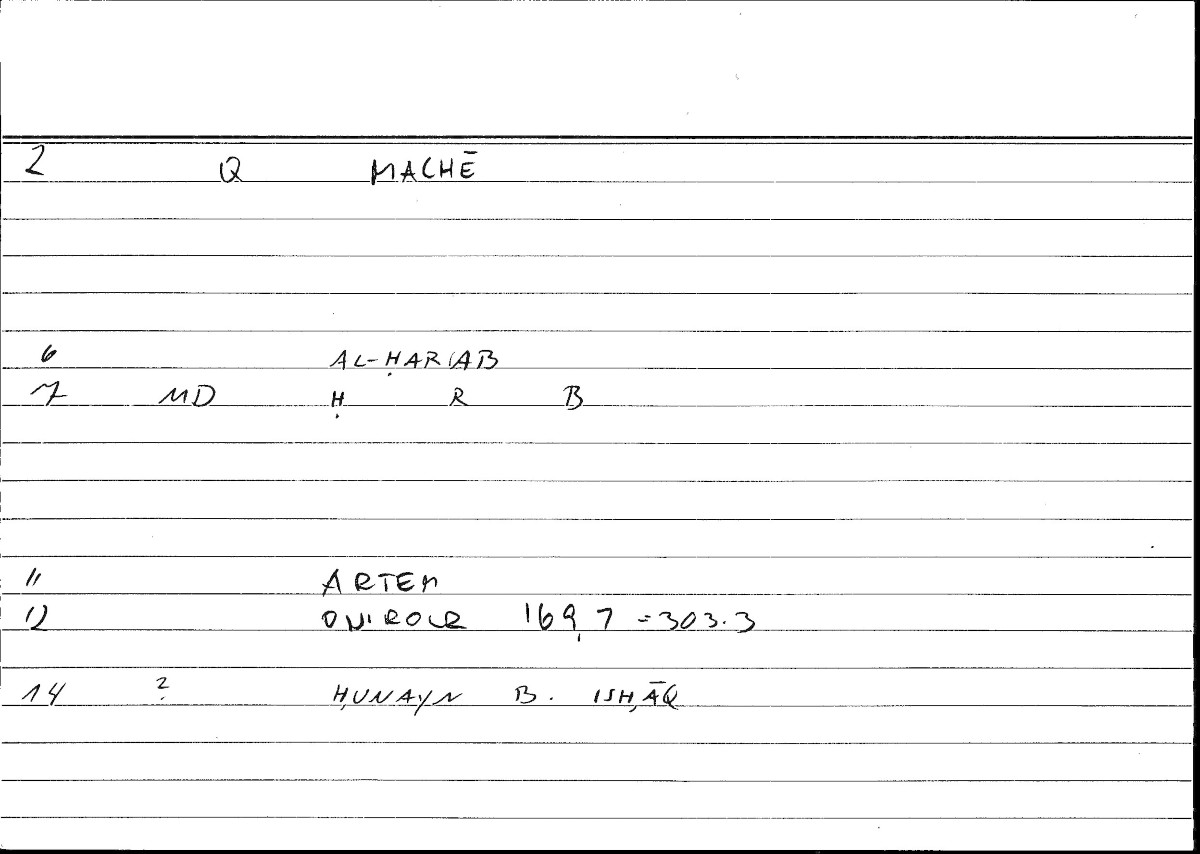 2 Q MACHĒ
6 AL-ḤARIAB
7 MD Ḥ R B
11 ARTEM
12 ONIROCR 169,7 =303.3
14 ? ḤUNAYN B. ISḤĀQ